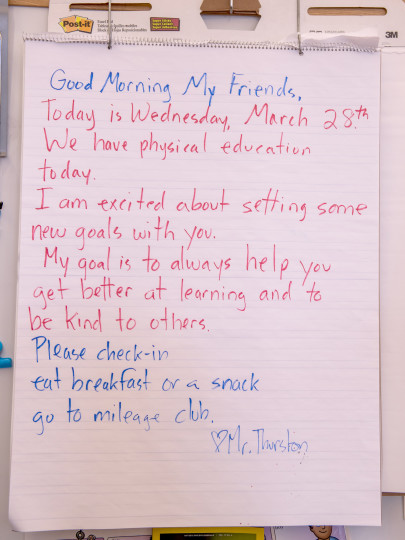 Post-it
3M
Good Morning My Friends,
Today is Wednesday, March 28th.
We have physical education
today.
I am excited about setting some
new goals with you.
My goal is to always help you
get better at learning and to
be kind to others.
Please check-in
eat breakfast or a snack
go to mileage club.
♡Mr. Thurston